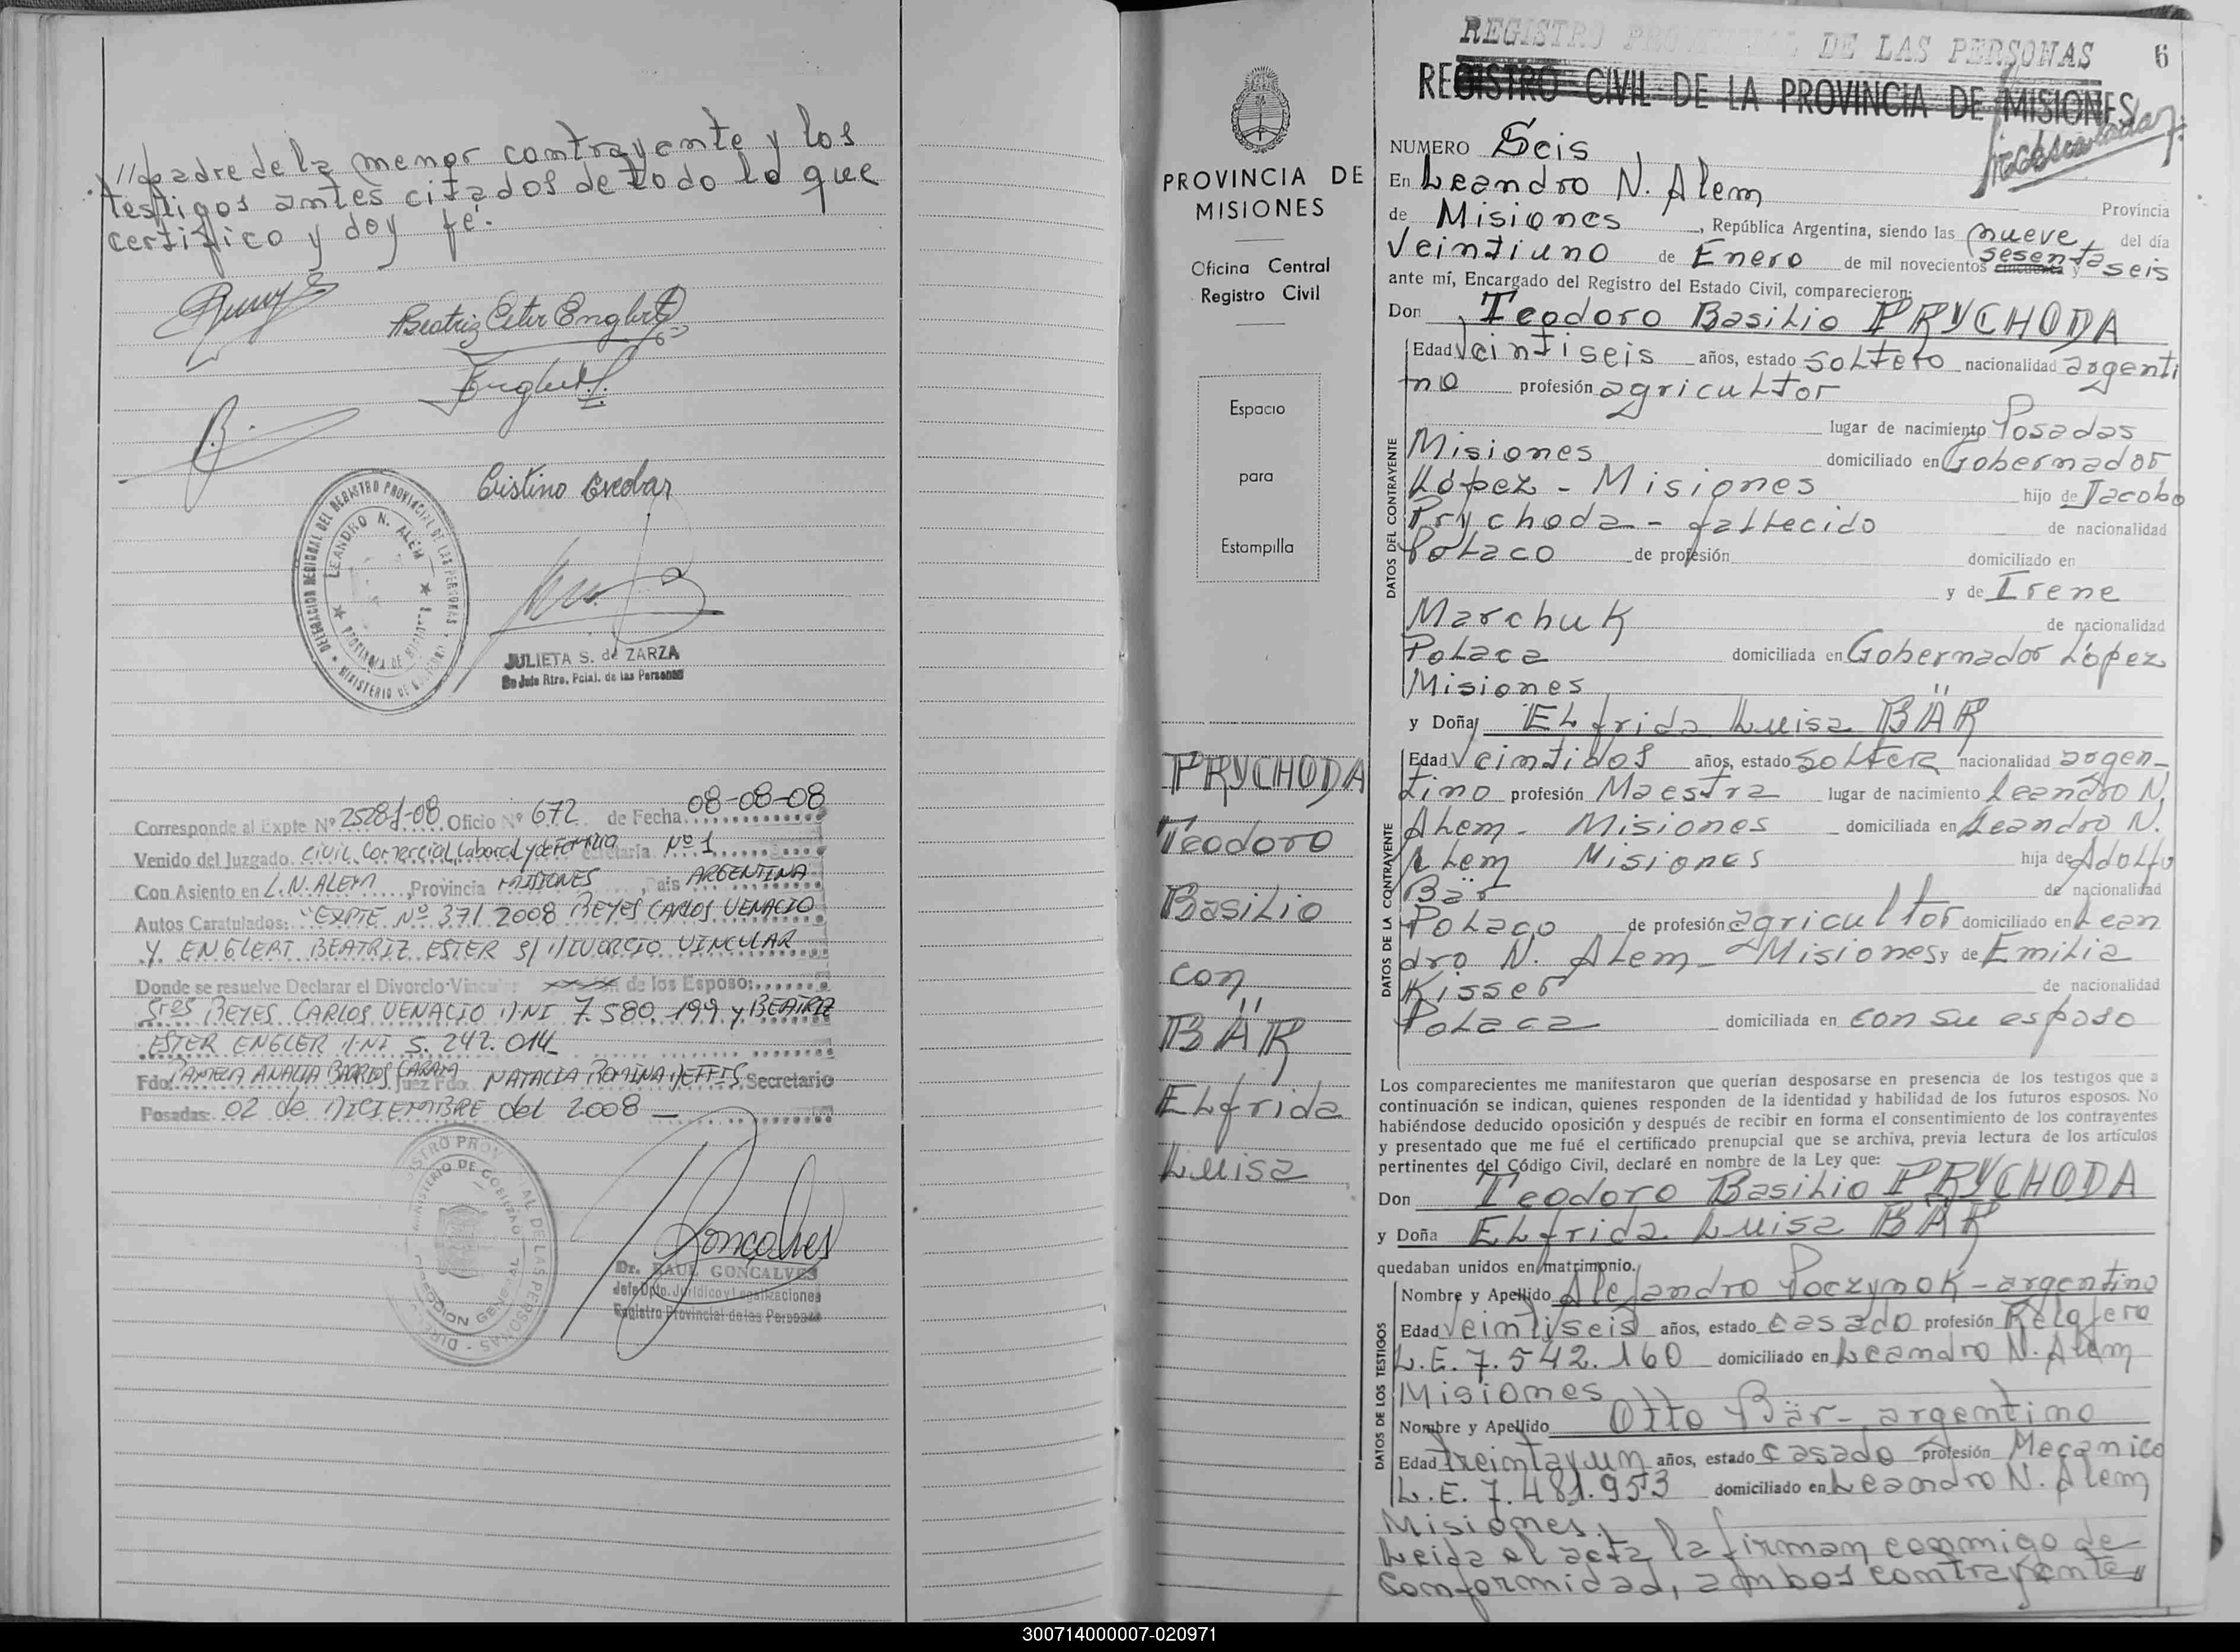 //padre de la menor contrayente y los
testigos antes citados de todo lo que
certifico y doy fé.
Beatriz Ester Englert
Englert
Cristino Escobar
DELEGACION REGIONAL DEL REGISTRO PROVINCIAL DE LAS PERSONAS
LEANDRO N. ALEM
PROVINCIA DE MISIONES
MINISTERIO DE GOBIERNO
JULIETA S. de ZARZA
Jefe Rtro. Pcial. de las Personas
Corresponde al Expte Nº 2528-08 Oficio Nº 672 de Fecha 08-08-08
Venido del Juzgado Civil, Comercial, Laboral y de Familia Secretaria Nº 1
Con Asiento en L.N. ALEM, Provincia MISIONES, Pais ARGENTINA
Autos Caratulados: "EXPTE Nº 371/2008 REYES CARLOS VENACIO
Y ENGLERT BEATRIZ ESTER S/ DIVORCIO VINCULAR
Donde se resuelve Declarar el Divorcio Vincular de los Esposo:
Sres REYES CARLOS VENACIO DNI 7.580.199 y BEATRIZ
ESTER ENGLER DNI 5.242.014
Fdo: PAMELA ANALIA BARRIOS CARAM Juez Fdo. NATALIA ROMINA Secretario
Posadas: 02 de DICIEMBRE del 2008
MINISTERIO DE GOBIERNO
DIRECCION GENERAL
Goncalves
Dr. RAUL GONCALVES
Jefe Dpto. Jurídico y Legalizaciones
Registro Provincial de las Personas
PROVINCIA DE
MISIONES
Oficina Central
Registro Civil
Espacio
para
Estampilla
PRYCHODA
Teodoro
Basilio
con
BÄR
Elfrida
Luisa
REGISTRO PROVINCIAL DE LAS PERSONAS
6
REGISTRO CIVIL DE LA PROVINCIA DE MISIONES
NUMERO Seis
En Leandro N. Alem
Provincia
de Misiones, República Argentina, siendo las nueve, del día
veintiuno de Enero de mil novecientos cincuenta y sesenta seis
ante mí, Encargado del Registro del Estado Civil, comparecieron:
Don Teodoro Basilio PRYCHODA
DATOS DEL CONTRAYENTE
Edad veintiseis años, estado soltero nacionalidad argenti
no profesión agricultor
lugar de nacimiento Posadas
Misiones domiciliado en Gobernador
López - Misiones hijo de Jacobo
Prychoda - fallecido de nacionalidad
Polaco de profesión domiciliado en
y de Irene
Marchuk de nacionalidad
Polaca domiciliada en Gobernador López
Misiones
y Doña Elfrida Luisa BÄR
DATOS DE LA CONTRAYENTE
Edad veintidos años, estado soltera nacionalidad argen-
tino profesión Maestra lugar de nacimiento Leandro N.
Alem - Misiones domiciliada en Leandro N.
Alem Misiones hija de Adolfo
Bär de nacionalidad
Polaco de profesión agricultor domiciliado en Lean
dro N. Alem - Misiones y de Emilia
Kisser de nacionalidad
Polaca domiciliada en con su esposo
Los comparecientes me manifestaron que querían desposarse en presencia de los testigos que a
continuación se indican, quienes responden de la identidad y habilidad de los futuros esposos. No
habiéndose deducido oposición y después de recibir en forma el consentimiento de los contrayentes
y presentado que me fué el certificado prenupcial que se archiva, previa lectura de los artículos
pertinentes del Código Civil, declaré en nombre de la Ley que:
Don Teodoro Basilio PRYCHODA
y Doña Elfrida Luisa BÄR
quedaban unidos en matrimonio.
DATOS DE LOS TESTIGOS
Nombre y Apellido Alejandro Poczynok - argentino
Edad veintiseis años, estado casado profesión Relojero
L.E. 7.542.160 domiciliado en Leandro N. Alem
Misiones
Nombre y Apellido Otto Bär - argentino
Edad treintayun años, estado casado profesión Mecanico
L.E. 7.481.953 domiciliado en Leandro N. Alem
Misiones.
Leida el acta la firman conmigo de
conformidad, ambos contrayentes
300714000007-020971